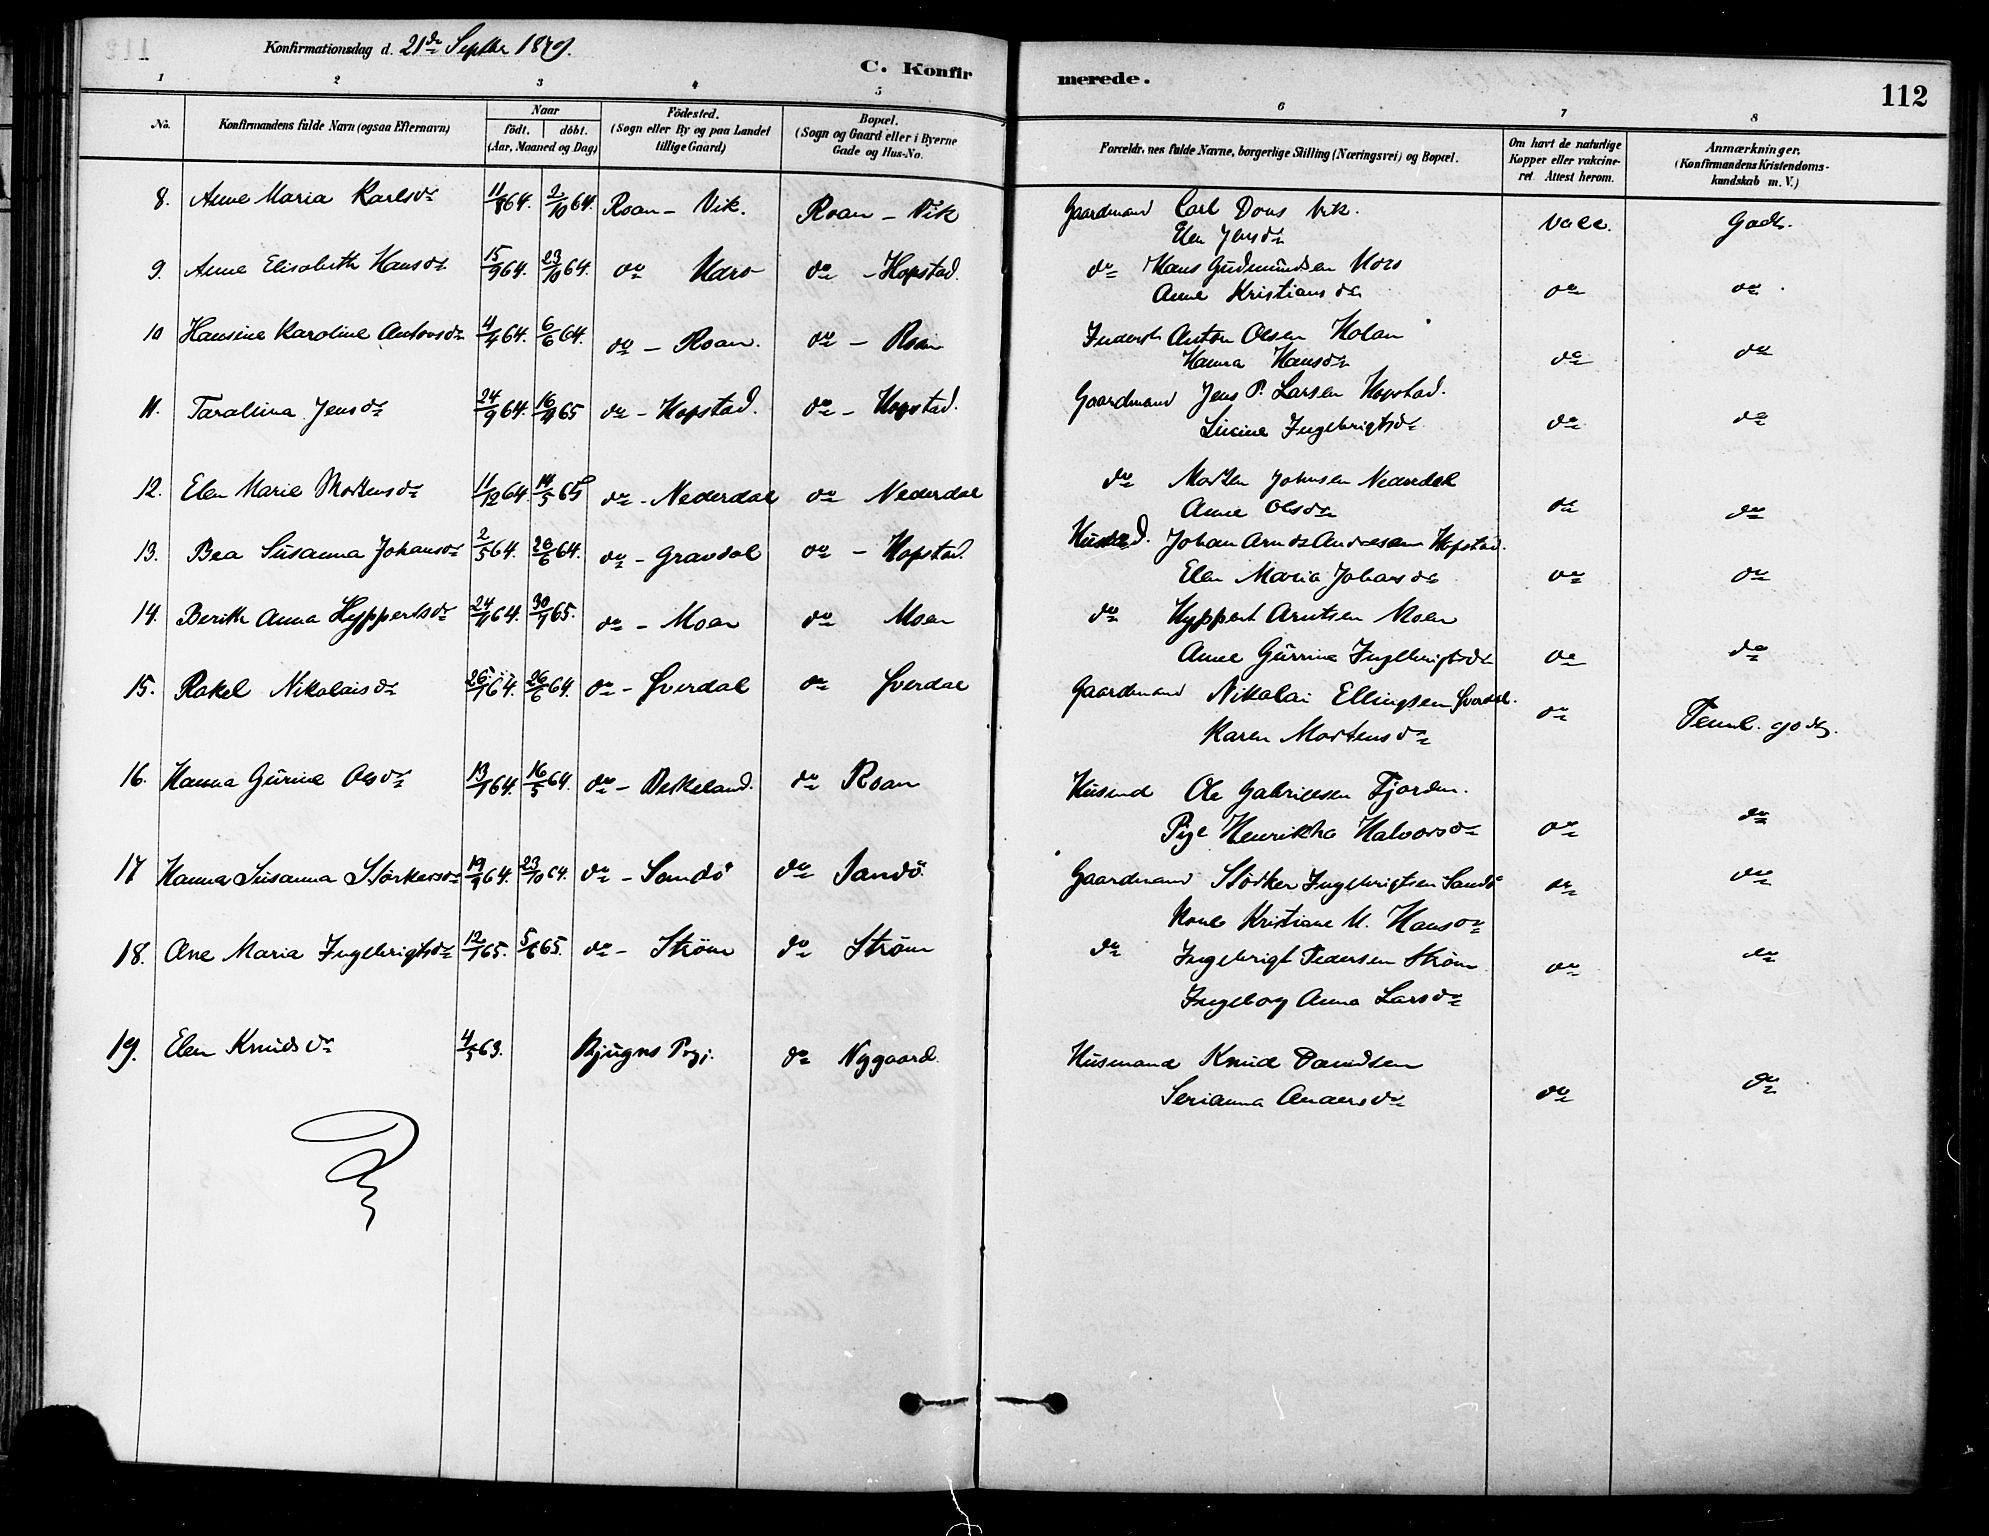 Konfirmationsdag d. 21de Septbr 1879.
C. Konfirmerede.
112
1 2 3 4 5 6 7 8
No. Konfirmandens fulde Navn (ogsaa Efternavn) Naar födt. döbt. (Aar, Maaned og Dag) Födested. (Sogn eller By og paa Landet tillige Gaard) Bopæl. (Sogn og Gaard eller i Byerne Gade og Hus-No. Forældrenes fulde Navne, borgerlige Stilling (Næringsvei) og Bopæl. Om havt de naturlige Kopper eller vakcineret. Attest herom. Anmærkninger. (Konfirmandens Kristendomskundskab m. V.)
8. Anne Maria Karlsdr 11/8 64. 2/10 64. Roan - Vik. Roan - Vik Gaardmand Carl Dons Vik. Vacc. Godt.
Elen Jensdr
9. Anne Elisabeth Hansdr 15/9 64. 23/10 64. do do - Hopstad. do Hans Gudmundsen
Anne Kristiansdr do do
10 Hansine Karoline Antonsdr 4/4 64. 6/6 64. do - Roan. do - Roan Inderst Anton Olsen
Hanna Hansdr do do
11. Taraline Jensdr 24/9 64. 65 do - Hopstad. do - Hopstad. Gaardmand Jens P. Larsen Hopstad.
Ingebrigtsdr do do
12. Elen Marie Mortensdr 11/12 64. 14/5 65 do - Nederdal do Nederdal do Morten Johnsen Nederdal
Anne Olsdr do do
13. Bea Susanna Johansdr 2/5 64. 26/6 64. do - Gravdal do - Hopstad. Husmd. Johan Arndt Andresen Hopstad.
Elen Maria Johansdr do do
14. Berith Anna Hyppertsdr 64. 30/7 65. do - Moen do Moen do Hyppert Arntsen Moen
Anne Gurine Ingebrigtsdr do do
15. Rakel Nikolaisdr 26/1 64. 26/6 64. do - Sverdal do Sverdal Gaardmand Nikolai Ellingsen Sverdal.
Karen Mortensdr do Teml. godt.
16. Hanna Gurine Olsdr 13/1 64. 16/5 64. do - Beskeland. do Roan Husmd Ole Gabrielsen Fjorden.
Pige Henrikka Halvorsdr do do
17 Hanna Susanna Störkersdr 19/9 64. 23/10 64. do - Sandö do Sandö Gaardmand Störker Ingebrigtsen Sandö do do
Kone Kristiane M. Hansdr
18. Ane Maria Ingebrigtsdr 12/1 65. 5/6 65. do - Ström do Ström do Ingebrigt Pedersen Ström do do
Ingeborg Anna Larsdr
19. Elen Knudsdr 4/5 63. Bjugns Prgj. do Nygaard. Husmand Knud Davidsen
Serianna Andersdr do do